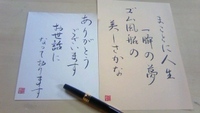 まことに人生
一瞬の夢
ゴム風船の
美しさかな
ありがとう
ございます
お世話に
なっております